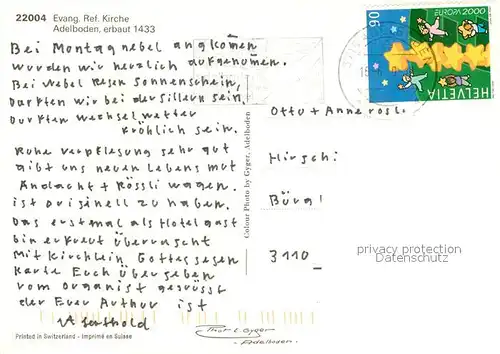 22004 Evang. Ref. Kirche
Adelboden, erbaut 1433
Bei Montagnebel angkomen
wurden wir herzlich aufgenomen.
Bei Nebel Regen Sonnenschein,
Durften wir bei der Sillern sein.
Durften Wechselwetter
fröhlich sein.
Ruhe verpflegung sehr gut
gibt uns neuen Lebens mut
Andacht + Rössli wagen.
ist originell zu haben.
Das erstemal als Hotel gast
bin erfreut überrascht
Mit Kirchlein Gottessegen
Karte Euch übergeben
vom Organist gegrüsst
der Euer Arthur ist
A Berthold
Printed in Switzerland - Imprimé en Suisse
Colour Photo by Gyger, Adelboden
90
EUROPA 2000
HELVETIA
Otto + Annerösli
Hirschi
3110
privacy protection
Datenschutz
Gyger
Adelboden.